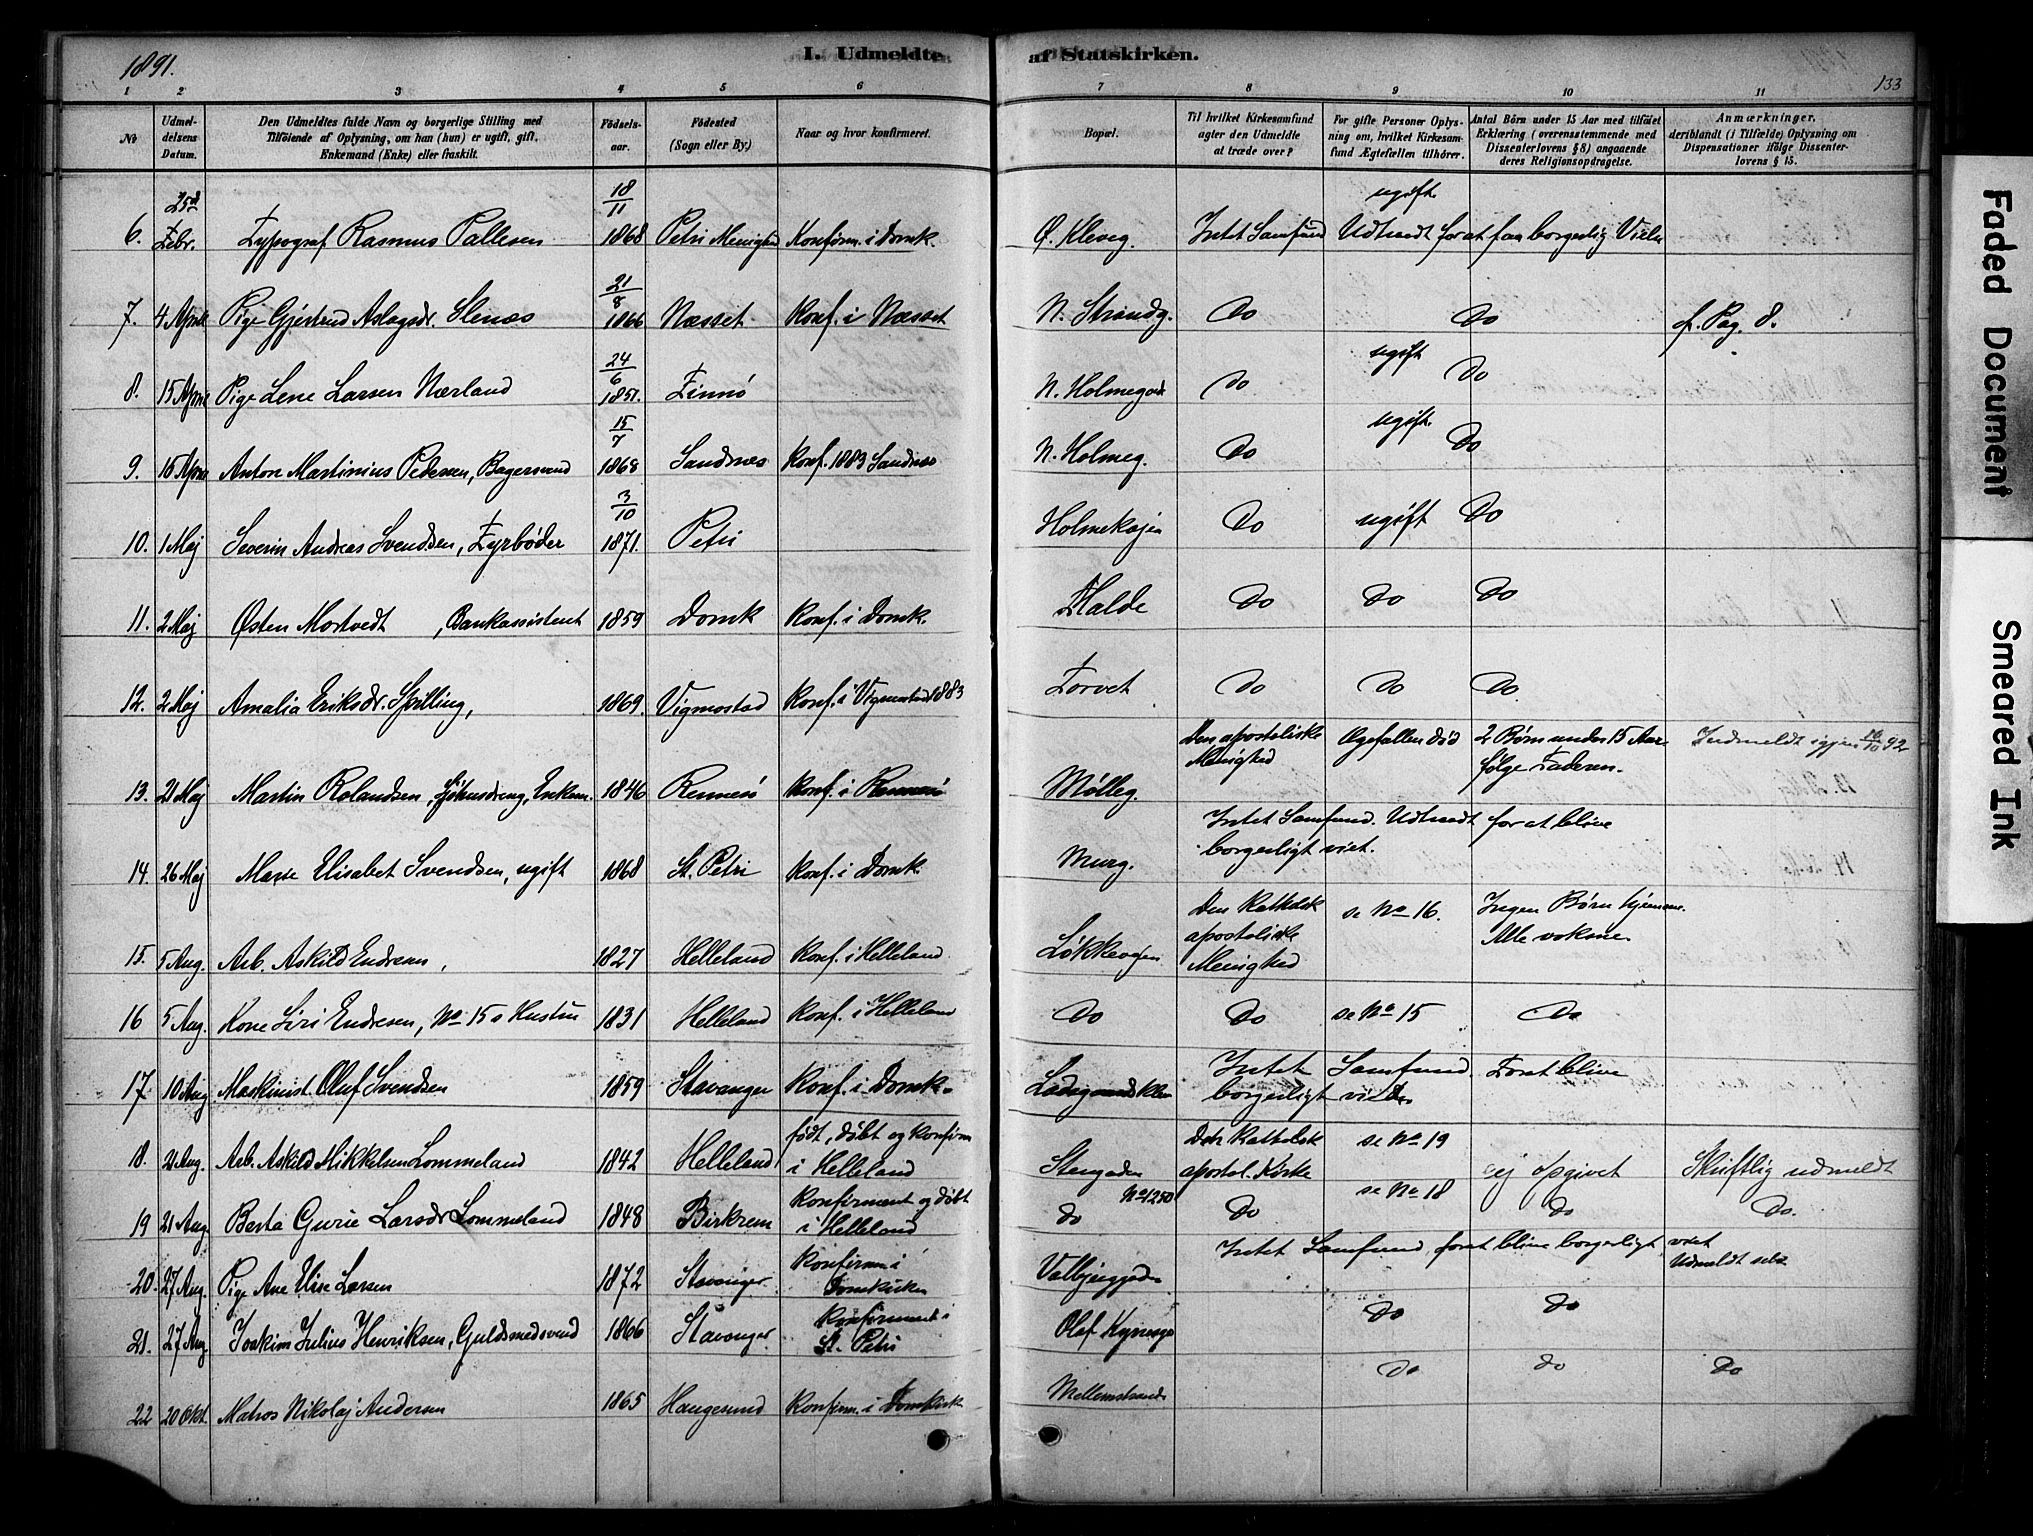 1891.
I. Udmeldte af Statskirken.
133
1 2 3 4 5 6 7 8 9 10 11
No
Udmeldelsens Datum.
Den Udmeldtes fulde Navn og borgerlige Stilling med
Tilföiende af Oplysning, om han (hun) er ugift, gift,
Enkemand (Enke) eller fraskilt.
Födselsaar.
Födested
(Sogn eller By.)
Naar og hvor konfirmeret.
Bopæl.
Til hvilket Kirkesamfund
agter den Udmeldte
at træde over?
For gifte Personer Oplysning om, hvilket Kirkesamfund Ægtefællen tilhörer.
Antal Börn under 15 Aar med tilföiet
Erklæring (overensstemmende med
Dissenterlovens § 8) angaaende
deres Religionsopdragelse.
Anmærkninger,
deriblandt (i Tilfælde) Oplysning om
Dispensationer ifölge Dissenterlovens § 15.
6. 25de Febr. Typograf Rasmus Pallesen 18/11 1868 Petri Menighed Konfirm. i Domk. Ø. Kleveg. Intet Samfund ugift Udtraadt for at faa borgerlig Vielse
7. 4 April Pige Gjertrud Aslagsdr. Slenæs 21/8 1866 Næsset Konf. i Næsset N. Strandg. Do Do f. Pag. 8.
8. 15 April Pige Lene Larsen Nærland 24/6 1851. Finnø N. Holmegad Do ugift Do
9. 16 April Anton Martinius Pedersen, Bagersvend 15/7 1868 Sandnæs Konf. 1883 Sandnæs N. Holmeg. Do ugift Do
10. 1 Maj Severin Andreas Svendsen, Fyrbøder 3/10 1871. Petri Holmekajen Do ugift Do
11. 2 Maj Østen Mortvedt, Bankassistent 1859 Domk Konf. i Domk. Do Do Do
12. 2 Maj Amalia Eriksdr. Spilling, 1869. Vigmostad Konf. i Vigmostad 1883 Torvet Do Do Do
13. 21 Maj Martin Rolandsen, Enkem. 1846 Rennesø Konf. i Rennesø Mølleg. Den apostoliske Menighed Ægefællen død 2 Børn under 15 Aar følge Faderen. Indmeldt igjen 16/10 92
14. 26 Maj Elisabet Svendsen, ugift 1868 St. Petri Konf. i Domk. Murg. Intet Samfund. Udtraadt for at blive borgerligt viet.
15. 5 Aug. Arb. Askild Endresen, 1827 Helleland Konf. i Helleland Løkkevejen Den Katholsk apostoliske Menighed se No 16. Ingen Børn hjemme. Alle voksne.
16 5 Aug. Kone Siri Endresen, No 15s Hustru 1831 Helleland Konf. i Helleland Do Do se No 15 Do
17 10 Aug Maskinist Oluf Svendsen 1859 Stavanger Konf. i Domk. Intet Samfund. For at blive borgerligt viet.
18. 21 Aug. Arb. Askild Mikkelsen Lommeland 1842 Helleland født, døbt og konfirm i Helleland Stengaden No 1250 Den Katolsk apostol. Kirke se No 19 ej opgivet Skriftlig udmeldt
19 21 Aug Berta Gurie Larsdr Lommeland 1848 Birkrem Konfirmeret og døbt i Helleland do Do se No 18 Do Do.
20. 27 Aug. Pige Ane Elise Larsen 1872 Stavanger Konfirm i Domkirken Valbjerggaden Intet Samfund, for at blive borgerligt viet Udmeldt selv
21. 27 Aug Joakim Julius Henriksen, Guldsmedsvend 1866 Stavanger Konfirmeret i St. Petri Olaf Kyrresg Do Do
22 20 Okt. Matros Nikolaj Andersen 1865 Haugesund Konfirm. i Domkirk Mellemstrands Do Do Do
Faded Document
Smeared Ink